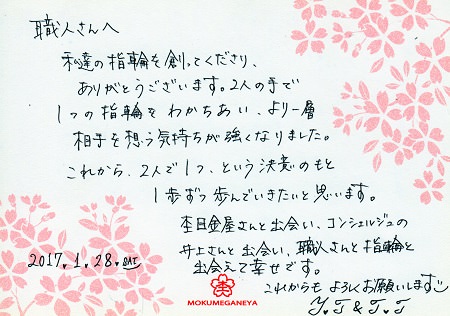 職人さんへ
私達の指輪を創ってくださり、
ありがとうございます。2人の手で
1つの指輪をわかちあい、より一層
相手を想う気持ちが強くなりました。
これから、2人で1つ、という決意のもと
1歩ずつ歩んでいきたいと思います。
杢目金屋さんと出会い、コンシェルジュの
井上さんと出会い、職人さんと指輪と
出会えて幸せです。
これからもよろしくお願いします
2017.1.28.SAT
Y.T & T.T
杢
MOKUMEGANEYA